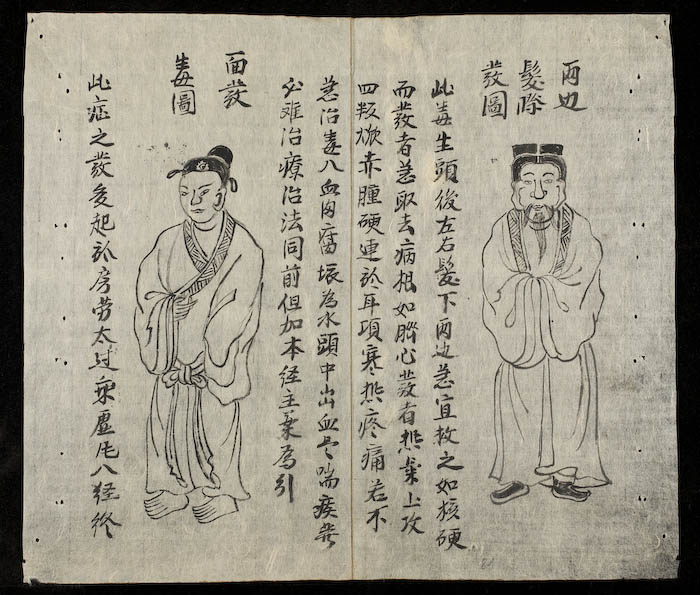 兩边
髮際
發圖
此毒生頭後左右髮下兩边急宜救之如核硬
而發者急取去病根如臍心發者热氣上攻
四赤腫硬連於耳項寒热疼痛若不
急治毒入血肉腐壞為水頭中出血是喘疾
必难治療治法同前但加本经主藥為引
面發
毒圖
此症之發多起於房劳太过乘虛入经